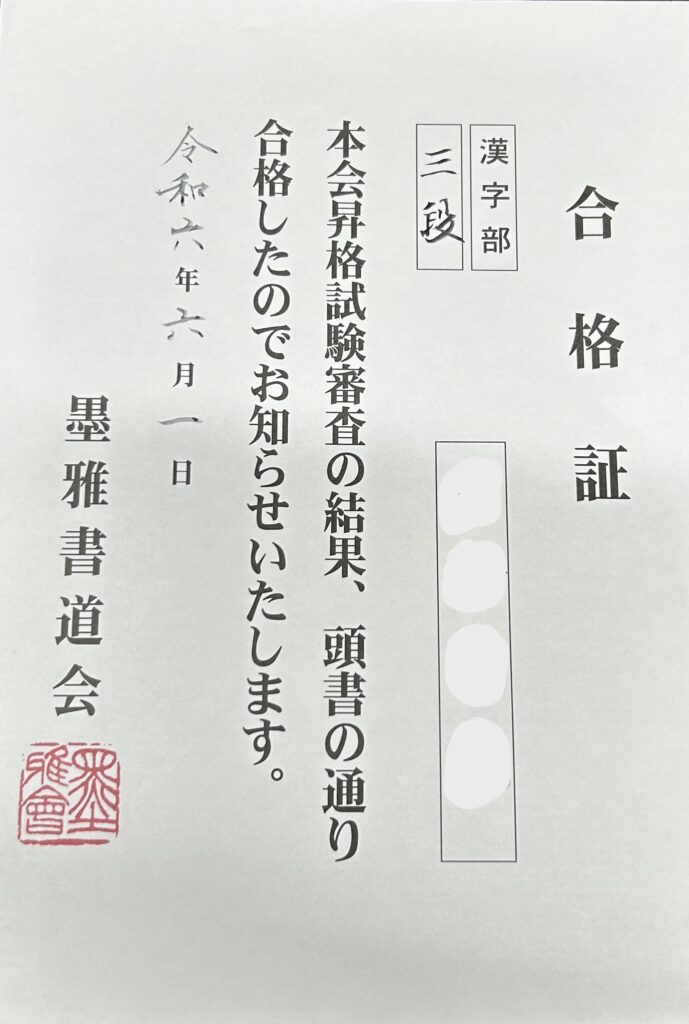 合格証
漢字部
三段
本会昇格試験審査の結果、頭書の通り
合格したのでお知らせいたします。
令和六年六月一日
墨雅書道会
墨雅會